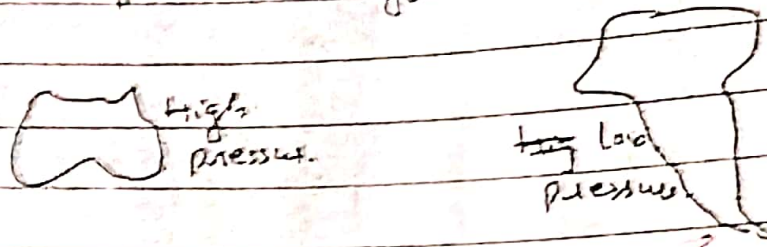 High
pressure.
Low
pressure.